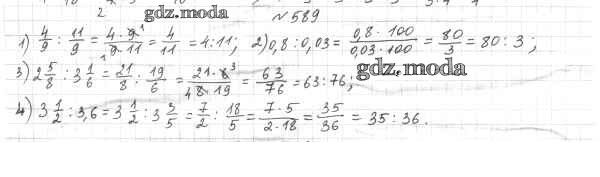 2
gdz.moda
№589
1) 4/9 : 11/9 = 4·9¹/¹9·11 = 4/11 = 4:11; 2) 0,8 : 0,03 = 0,8·100/0,03·100 = 80/3 = 80 : 3;
gdz.moda
3) 2 5/8 : 3 1/6 = 21/8 : 19/6 = 21·6³/₄8·19 = 63/76 = 63:76;
4) 3 1/2 : 3,6 = 3 1/2 : 3 3/5 = 7/2 : 18/5 = 7·5/2·18 = 35/36 = 35 : 36.